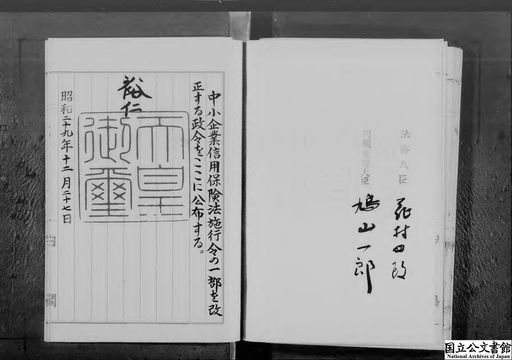 法務大臣
花村四郎
内閣総理大臣
鳩山一郎
中小企業信用保険法施行令の一部を改
正する政令をここに公布する。
裕仁
天皇
御璽
昭和二十九年十二月二十七日
国立公文書館
National Archives of Japan